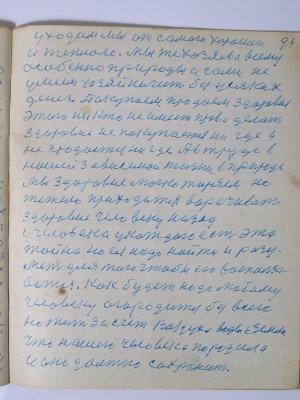 уходим мы от самого хорошего 94
и теплого. Мы не хозяева всему
особенно природы а сами не
умеем хозяйничить без всяких
денег. Покупаем продаем здоровье
этого никто не имеет право делать
здоровие не покупается ни где и
не продается ни где. А в труде в
нашей зависимой жизни в природе
мы здоровие можно терять но
тяжело приходится ворачивать
здоровие человеку назад
У человека у каждого есть эта
тайна но ея надо найти и разу-
меть для того чтобы ею
Как будет надо любому
человеку огородится бы всего
но жить за счет воздуха воды и земли
что нашего человека породила
и оно должно сохранить.